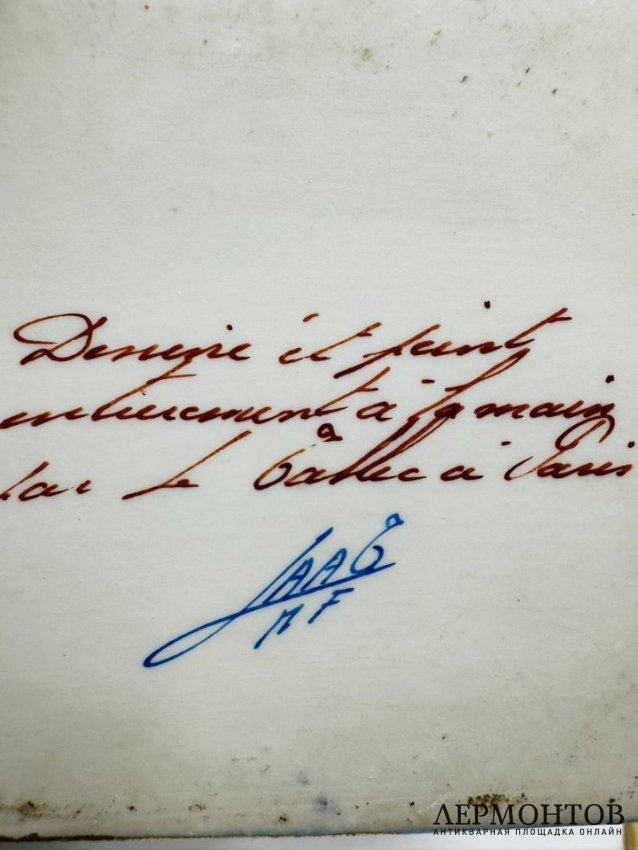 Dessiné et peint
entièrement à la main
par Le Tallec à Paris
ЛЕРМОНТОВ
АНТИКВАРНАЯ ПЛОЩАДКА ОНЛАЙН